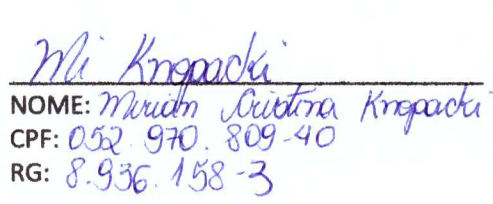 Mi Knopacki
NOME: Mirian Cristina Knopacki
CPF: 052.970.809-40
RG: 8.936.158-3